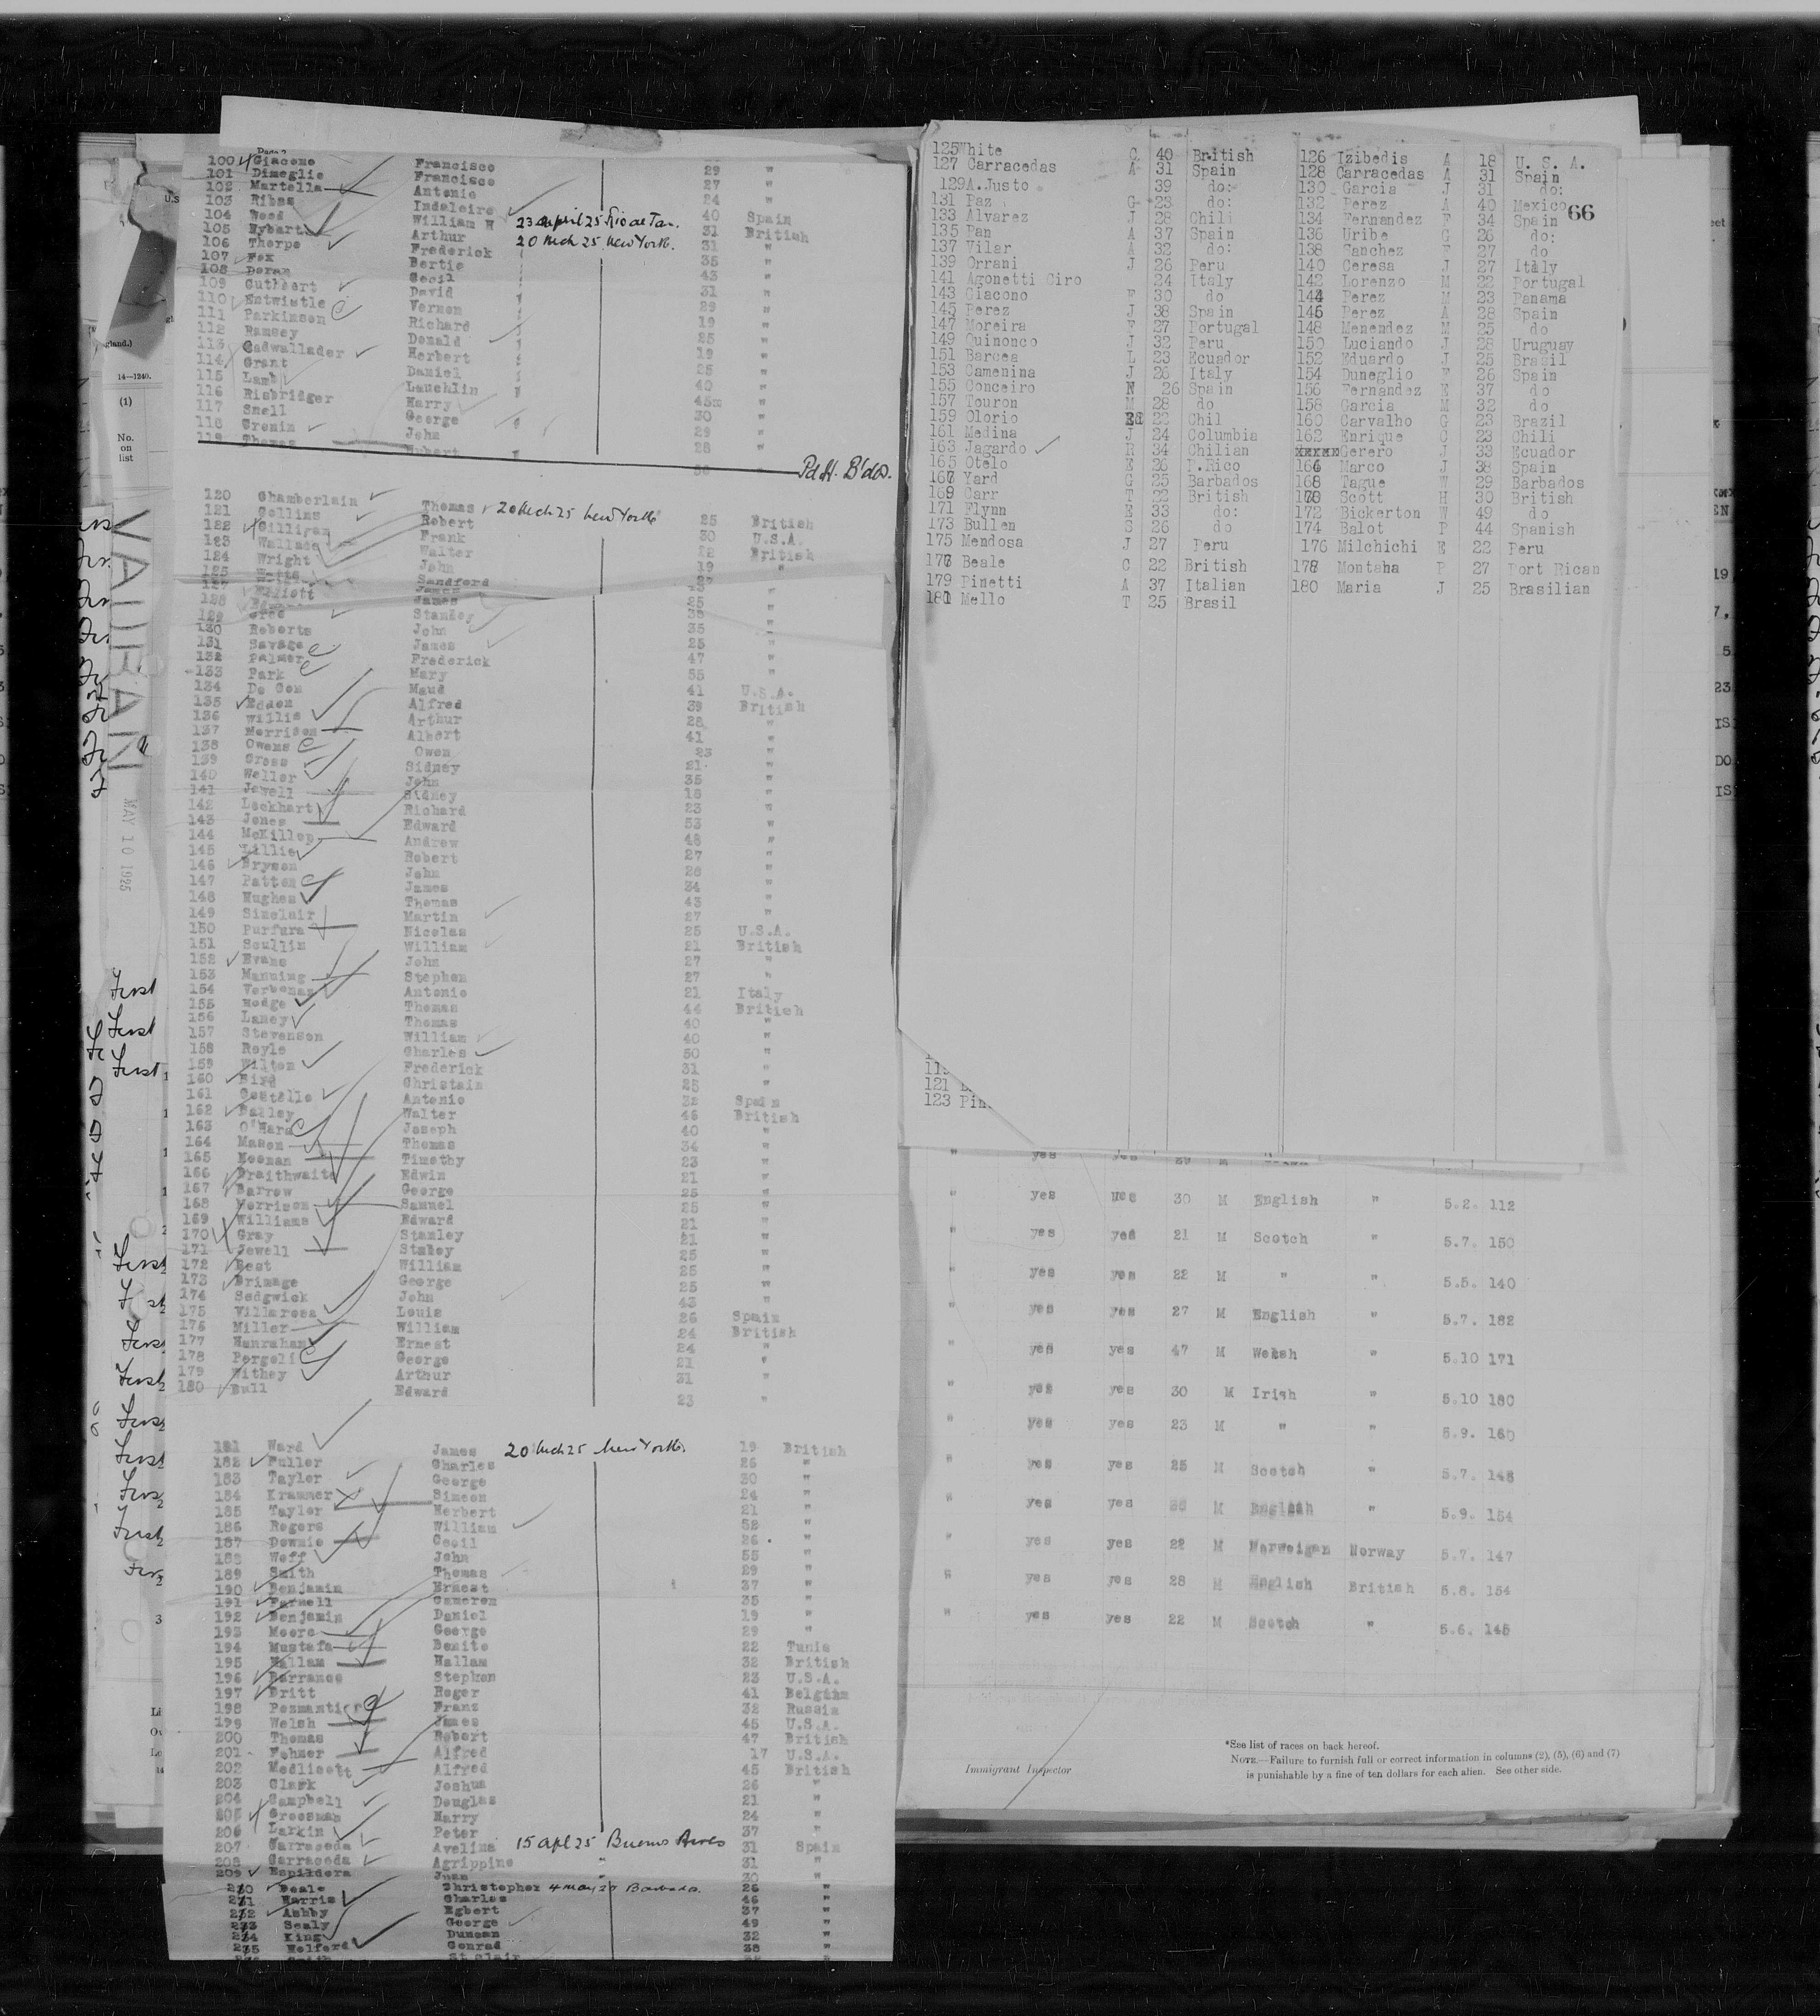 Page 2
100 Giacono Francisco 29 "
101 Dimeglie Francisco 27 "
102 Martella Antonio 24 "
103 Ribas Indaleire 40 Spain
104 Wood William H 23 april 25 Rio de Jan. 31 British
105 Hybart Arthur 20 Mch 25 New York. 31 "
106 Thorpe Frederick 35 "
107 Fox Bertie 43 "
108 Doran Cecil 31 "
109 Cuthbert David 29 "
110 Entwistle Vernon 19 "
111 Parkinson Richard 25 "
112 Ramsey Donald 19 "
113 Cadwallader Herbert 25 "
114 Grant Daniel 40 "
115 Lamb Lauchlin 45m "
116 Risbridger Harry 30 "
117 Snell George 29 "
118 Cronin John 28 "
119 Thomas Hubert
120 Chamberlain Thomas 20 Mch 25 New York 25 British
121 Collins Robert 30 U.S.A.
122 Gilligan Frank 22 British
123 Wallace Walter 19 "
124 Wright John
125 Sandford
127 Elliott James 25 "
128 Stanley 38 "
129 Cree John 35 "
130 Roberts James 25 "
131 Savage Frederick 47 "
132 Palmer Mary 55 "
133 Park Maud 41 U.S.A.
134 De Con Alfred 39 British
135 Eddon Arthur 28 "
136 Willis Albert 41 "
137 Morrison Owen 23 "
138 Owens Sidney 21 "
139 Gross John 35 "
140 Weller Sidney 18 "
141 Jewell Richard 23 "
142 Lockhart Edward 53 "
143 Jones Andrew 48 "
144 McKillop Robert 27 "
145 Lillie John 28 "
146 Bryson James 34 "
147 Patton Thomas 43 "
148 Hughes Martin 27 "
149 Sinclair Nicolas 25 U.S.A.
150 Purfura William 21 British
151 Scullin John 27 "
152 Evans Stephen 27 "
153 Manning Antonio 21 Italy
154 Verbenas Thomas 44 British
155 Hodge Thomas 40 "
156 Laney William 40 "
157 Stevenson Charles 50 "
158 Royle Frederick 31 "
159 Wilton Christain 25 "
160 Bird Antonio 32 Spain
161 Costello Walter 46 British
162 Bailey Joseph 40 "
163 O'Hara Thomas 34 "
164 Mason Timothy 23 "
165 Noonan Edwin 21 "
166 Braithwaite George 25 "
167 Barrow Samuel 25 "
168 Morrison Edward 21 "
169 Williams Stanley 21 "
170 Gray Stanley 25 "
171 Jewell William 25 "
172 Best George 25 "
173 Brimage John 43 "
174 Sedgwick Louis 26 Spain
175 Villarosa William 24 British
176 Miller Ernest 24 "
177 Hanrahan George 21 "
178 Pergoli Arthur 31 "
179 Withey Edward 23 "
180 Bull
181 Ward James 20 Mch 25 New York. 19 British
182 Fuller Charles 25 "
183 Taylor George 30 "
184 Krammer Simeon 24 "
185 Taylor Herbert 21 "
186 Rogers William 52 "
187 Downie Cecil 26 "
188 Woff John 55 "
189 Smith Thomas 29 "
190 Benjamin Ernest 37 "
191 Farnell Cameron 35 "
192 Benjamin Daniel 19 "
193 Moore George 29 "
194 Mustafa Benito 22 Tunis
195 Hallam Hallam 32 British
196 Barrance Stephen 23 U.S.A.
197 Britt Roger 41 Belgium
198 Pozmantir Franz 32 Russia
199 Welsh James 45 U.S.A.
200 Thomas Robert 47 British
201 Fehner Alfred 17 U.S.A.
202 Medlicott Alfred 45 British
203 Clark Joshua 26 "
204 Campbell Douglas 21 "
205 Groesman Harry 24 "
206 Larkin Peter 37 "
207 Carraceda Avelina 15 Apl 25 Buenos Aires 31 Spain
208 Carraceda Agrippine " 31 "
209 Espildora Juan 30 "
210 Beale Christopher 4 May 25 Barbados. 26 "
211 Harris Charles 46 "
212 Ashby Egbert 37 "
213 Sealy George 49 "
214 King Duncan 32 "
215 Welford Conrad 38 "
Smith St Clair
Pd H. B'dos.
125 White C 40 British 126 Izibedis A 18 U. S. A.
127 Carracedas A 31 Spain 128 Carracedas A 31 Spain
129 A. Justo 39 do: 130 Garcia J 31 do:
131 Paz G 23 do: 132 Perez A 40 Mexico
66
133 Alvarez J 28 Chili 134 Fernandez F 34 Spain
135 Pan A 37 Spain 136 Uribe G 26 do:
137 Vilar A 32 do: 138 Sanchez F 27 do
139 Orrani J 26 Peru 140 Ceresa J 27 Italy
141 Agonetti Ciro 24 Italy 142 Lorenzo M 22 Portugal
143 Giacono F 30 do 144 Perez M 23 Panama
145 Perez J 38 Spain 146 Perez A 28 Spain
147 Moreira F 27 Portugal 148 Menendez M 25 do
149 Quinonco J 32 Peru 150 Luciando J 28 Uruguay
151 Barcea L 23 Ecuador 152 Eduardo J 25 Brasil
153 Camenina J 26 Italy 154 Duneglio F 26 Spain
155 Conceiro N 26 Spain 156 Fernandez E 37 do
157 Touron M 28 do 158 Garcia M 32 do
159 Olorio Ed 22 Chil 160 Carvalho G 23 Brazil
161 Medina J 24 Columbia 162 Enrique C 23 Chili
163 Jagardo R 34 Chilian xxxxx Gerero J 33 Ecuador
165 Otelo E 26 P.Rico 166 Marco J 38 Spain
167 Yard G 25 Barbados 168 Tague W 29 Barbados
169 Carr T 22 British 170 Scott H 30 British
171 Flynn E 33 do: 172 Bickerton W 49 do
173 Bullen S 26 do 174 Balot P 44 Spanish
175 Mendosa J 27 Peru 176 Milchichi E 22 Peru
177 Beale C 22 British 178 Montaha P 27 Port Rican
179 Pinetti A 37 Italian 180 Maria J 25 Brasilian
181 Mello T 25 Brasil
121
123 Pin
" yes yes 29 M
" yes yes 30 M English " 5.2. 112
" yes yes 21 M Scotch " 5.7. 150
" yes yes 22 M " " 5.5. 140
" yes yes 27 M English " 5.7. 182
" yes yes 47 M Welsh " 5.10 171
" yes yes 30 M Irish " 5.10 180
" yes yes 23 M " " 5.9. 160
" yes yes 25 M Scotch " 5.7. 145
" yes yes 38 M English " 5.9. 154
" yes yes 22 M Norweigan Norway 5.7. 147
" yes yes 28 M English British 5.8. 154
" yes yes 22 M Scotch " 5.6. 145
Immigrant Inspector
*See list of races on back hereof.
NOTE.—Failure to furnish full or correct information in columns (2), (5), (6) and (7)
is punishable by a fine of ten dollars for each alien. See other side.
U.S
gland.)
14—1240.
(1)
No.
on
list
VAUBAN
MAY 10 1925
First
First
First
First
First
First
First
First
First
First
3